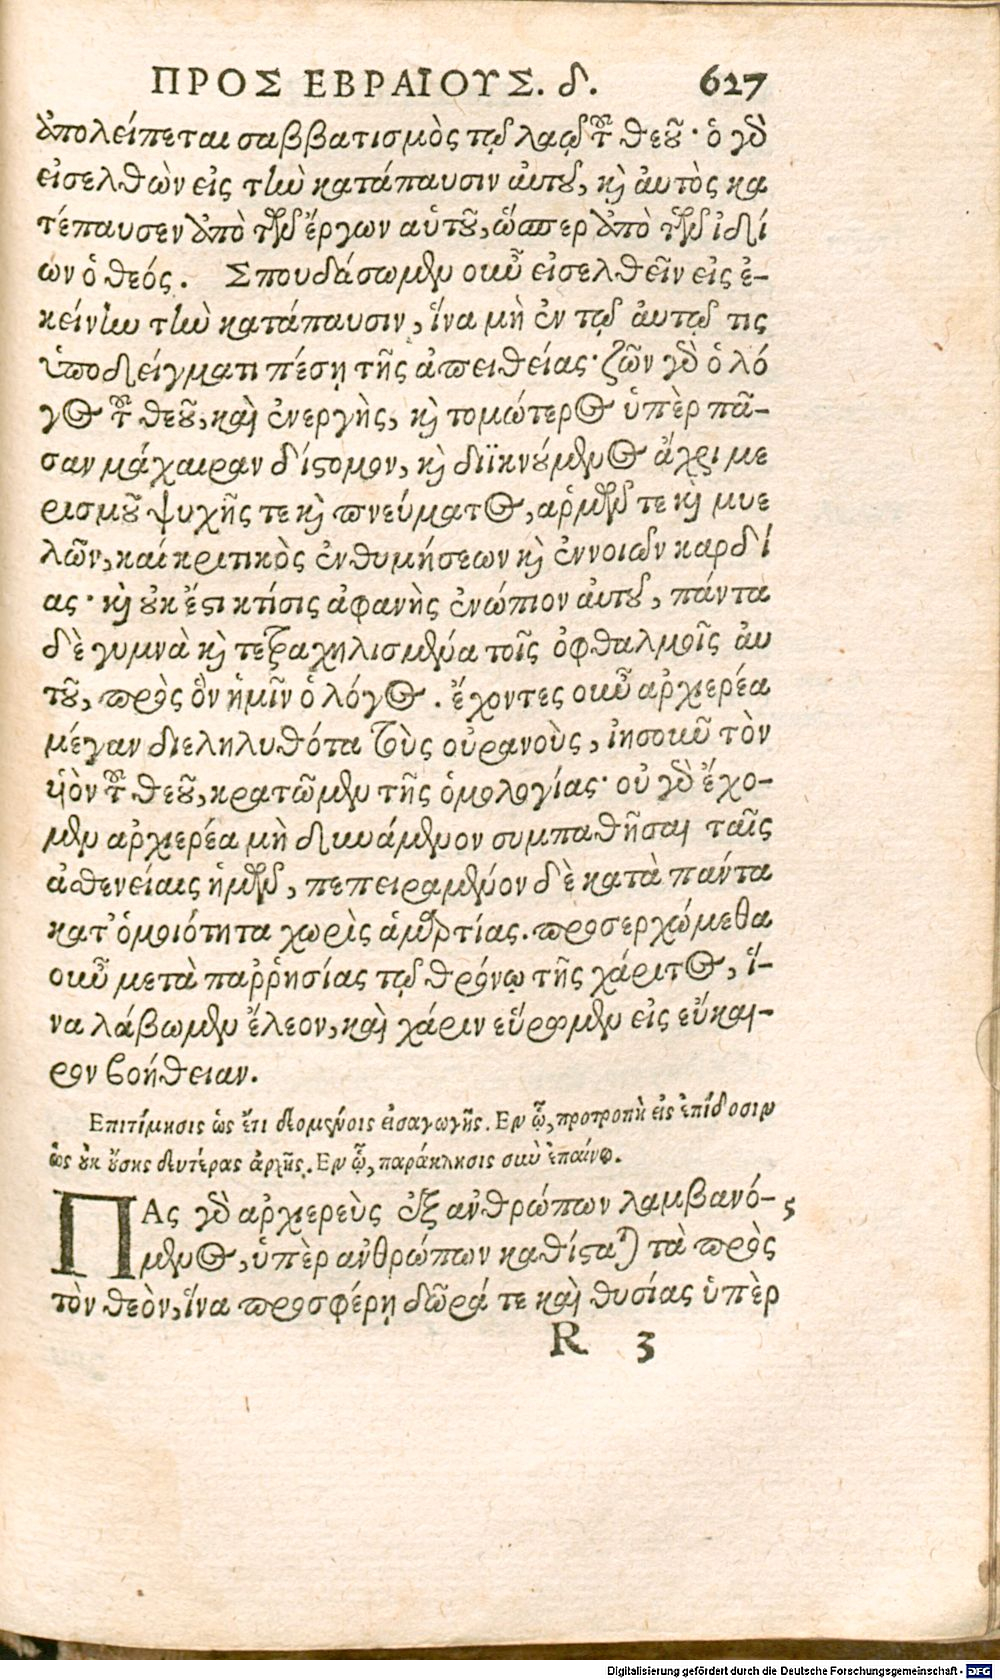 ΠΡΟΣ ΕΒΡΑΙΟΥΣ. δ. 627
ἀπολείπεται σαββατισμὸς τῷ λαῷ τοῦ θεοῦ· ὁ γὰρ
εἰσελθὼν εἰς τὴν κατάπαυσιν ἀυτοῦ, καὶ ἀυτὸς κα
τέπαυσεν ἀπὸ τῶν ἔργων αὑτοῦ, ὥσπερ ἀπὸ τῶν ἰδί
ων ὁ θεός. Σπουδάσωμεν οὖν εἰσελθεῖν εἰς ἐ-
κείνην τὴν κατάπαυσιν, ἵνα μὴ ἐν τῷ ἀυτῷ τις
ὑποδείγματι πέσῃ τῆς ἀπειθείας· ζῶν γὰρ ὁ λό
γος τοῦ θεοῦ, καὶ ἐνεργὴς, καὶ τομώτερος ὑπὲρ πᾶ-
σαν μάχαιραν δίστομον, καὶ διϊκνούμενος ἄχρι με
ρισμοῦ ψυχῆς τε καὶ πνεύματος, ἁρμῶν τε καὶ μυε
λῶν, καί κριτικὸς ἐνθυμήσεων καὶ ἐννοιῶν καρδί
ας· καὶ οὐκ ἔστι κτίσις ἀφανὴς ἐνώπιον ἀυτοῦ, πάντα
δὲ γυμνὰ καὶ τετραχηλισμένα τοῖς ὀφθαλμοῖς ἀυ
τοῦ, πρὸς ὃν ἡμῖν ὁ λόγος. ἔχοντες οὖν ἀρχιερέα
μέγαν διεληλυθότα τοὺς οὐρανοὺς, ἰησοῦν τὸν
ὑιὸν τοῦ θεοῦ, κρατῶμεν τῆς ὁμολογίας· οὐ γὰρ ἔχο-
μεν ἀρχιερέα μὴ δυνάμενον συμπαθῆσαι ταῖς
ἀσθενείαις ἡμῶν, πεπειραμένον δὲ κατὰ πάντα
κατ' ὁμοιότητα χωρὶς ἁμαρτίας. προσερχώμεθα
οὖν μετὰ παῤῥησίας τῷ θρόνῳ τῆς χάριτος, ἵ-
να λάβωμεν ἔλεον, καὶ χάριν εὕρωμεν εἰς εὔκαι-
ρον βοήθειαν.
Επιτίμησις ὡς ἔτι δεομένοις εἰσαγωγῆς. Εν ᾧ, προτροπὴ εἰς ἐπίδοσιν
ὡς οὐκ οὔσης δευτέρας ἀρχῆς. Εν ᾧ, παράκλησις σὺν ἐπαίνῳ.
ΠΑς γὰρ ἀρχιερεὺς ἐξ ἀνθρώπων λαμβανό- 5
μενος, ὑπὲρ ἀνθρώπων καθίσταται τὰ πρὸς
τὸν θεὸν, ἵνα προσφέρῃ δῶρά τε καὶ θυσίας ὑπὲρ
R 3
Digitalisierung gefördert durch die Deutsche Forschungsgemeinschaft - DFG